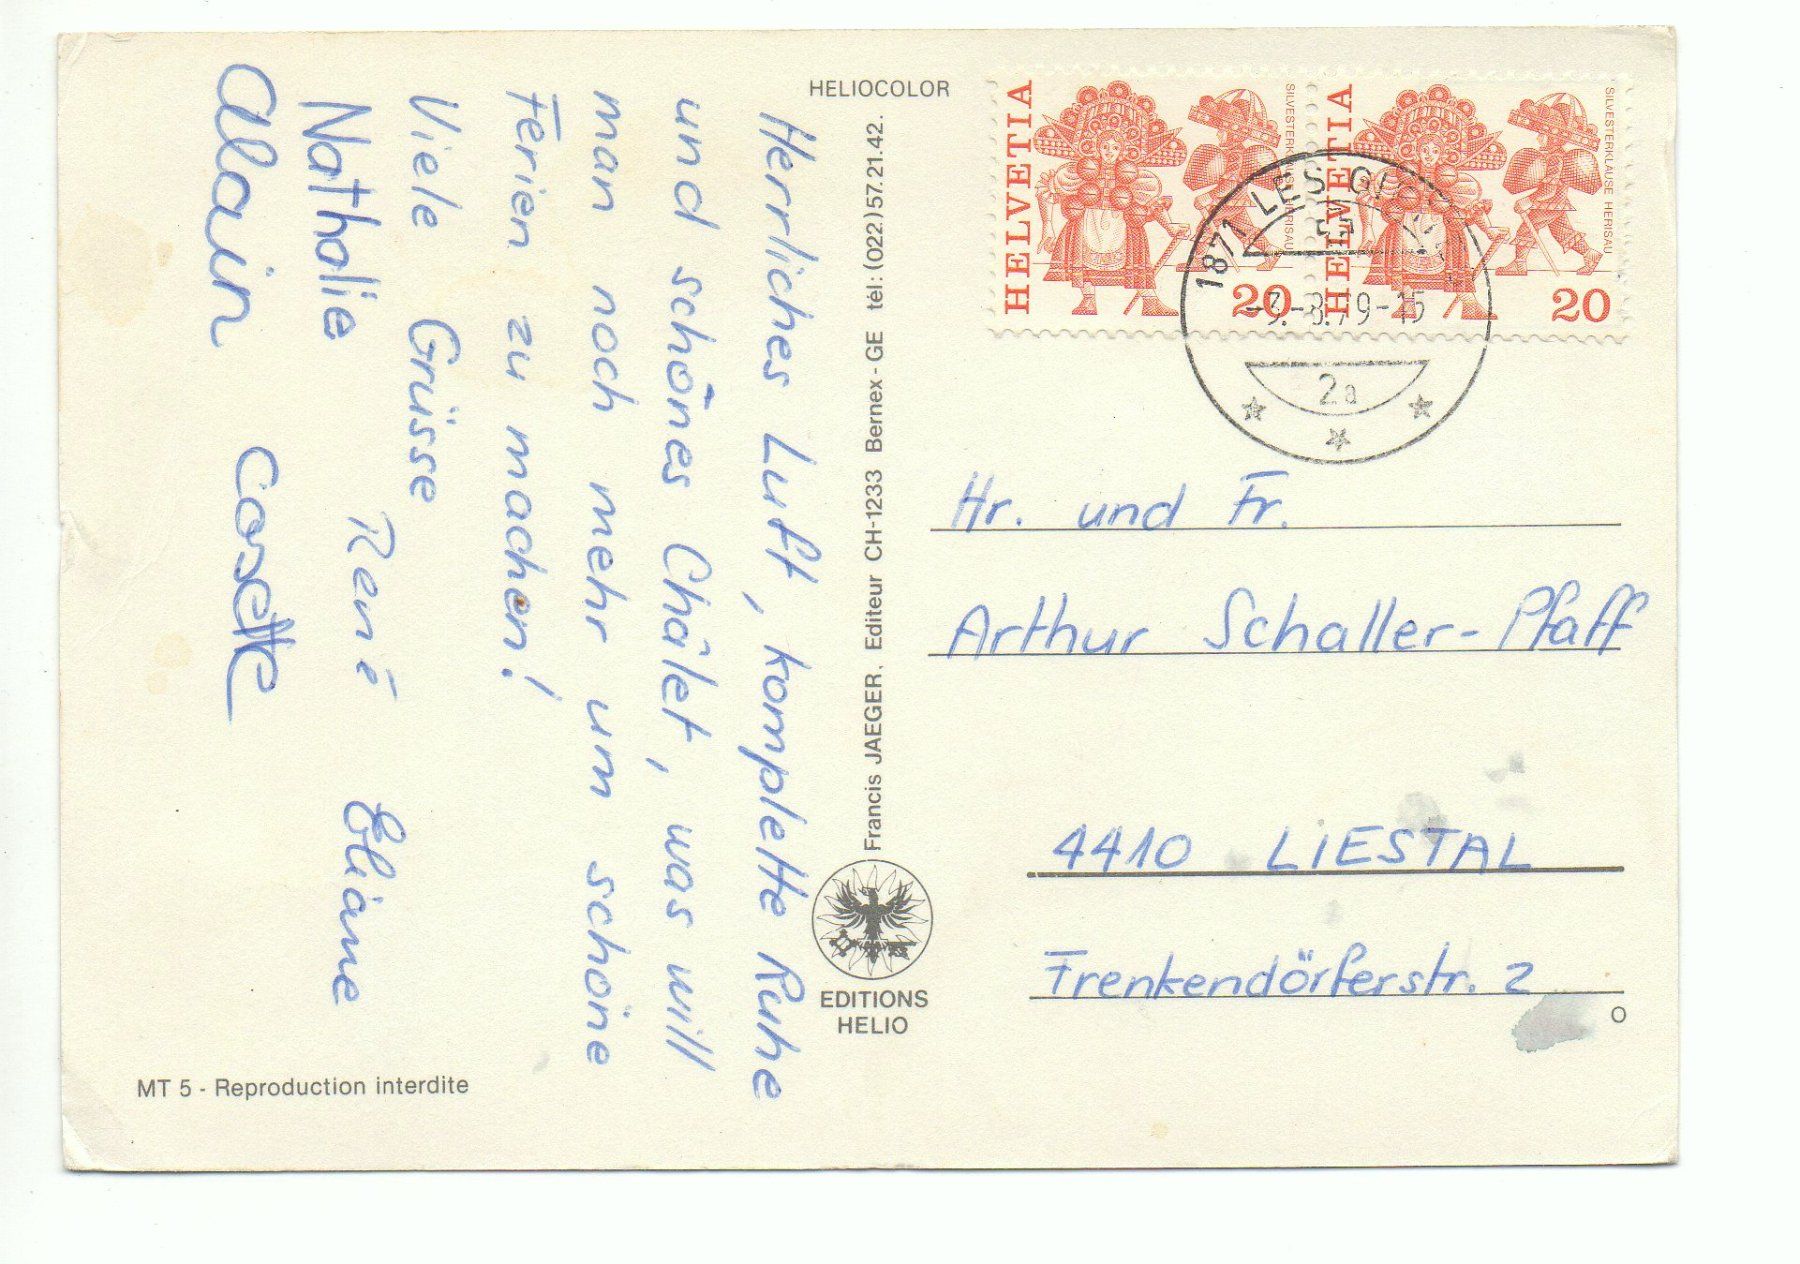 HELIOCOLOR
Herrliches Luft, komplette Ruhe
und schönes Châlet, was will
man noch mehr um schöne
Ferien zu machen!
Viele Grüsse
René Eliane
Nathalie
Alain Cosette
MT 5 - Reproduction interdite
Francis JAEGER, Editeur CH-1233 Bernex - GE tél: (022) 57.21.42.
EDITIONS
HELIO
HELVETIA
SILVESTERKLAUSE HERISAU
20
HELVETIA
SILVESTERKLAUSE HERISAU
20
1871 LES
-3.-8.79-15
2a
Hr. und Fr.
Arthur Schaller-Pfaff
4410 LIESTAL
Frenkendörferstr. 2
O